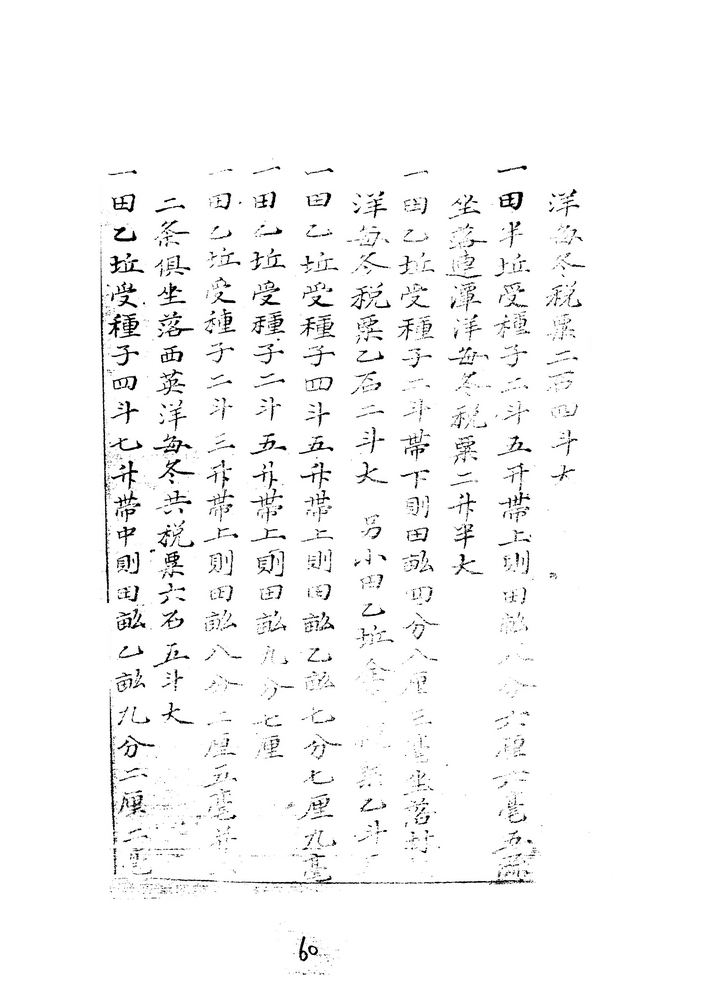 洋每冬税粟二石四斗大
一田半坵受種子二斗五升帶上則田畆八分六厘六毫五
坐落連潭洋每冬税粟二升半大
一田乙坵受種子二斗帶下則田畆四分八厘三毫坐落村
洋每冬税粟乙石二斗大 另小田乙坵 粟乙斗
一田乙坵受種子四斗五升帶上則田畆乙畆七分七厘九毫
一田乙坵受種子二斗五升帶上則田畆九分七厘
一田乙坵受種子二斗三升帶上則田畆八分二厘五毫并
二条俱坐落西英洋每冬共税粟六石五斗大
一田乙坵受種子四斗七升帶中則田畆乙畆九分二厘二毫
60